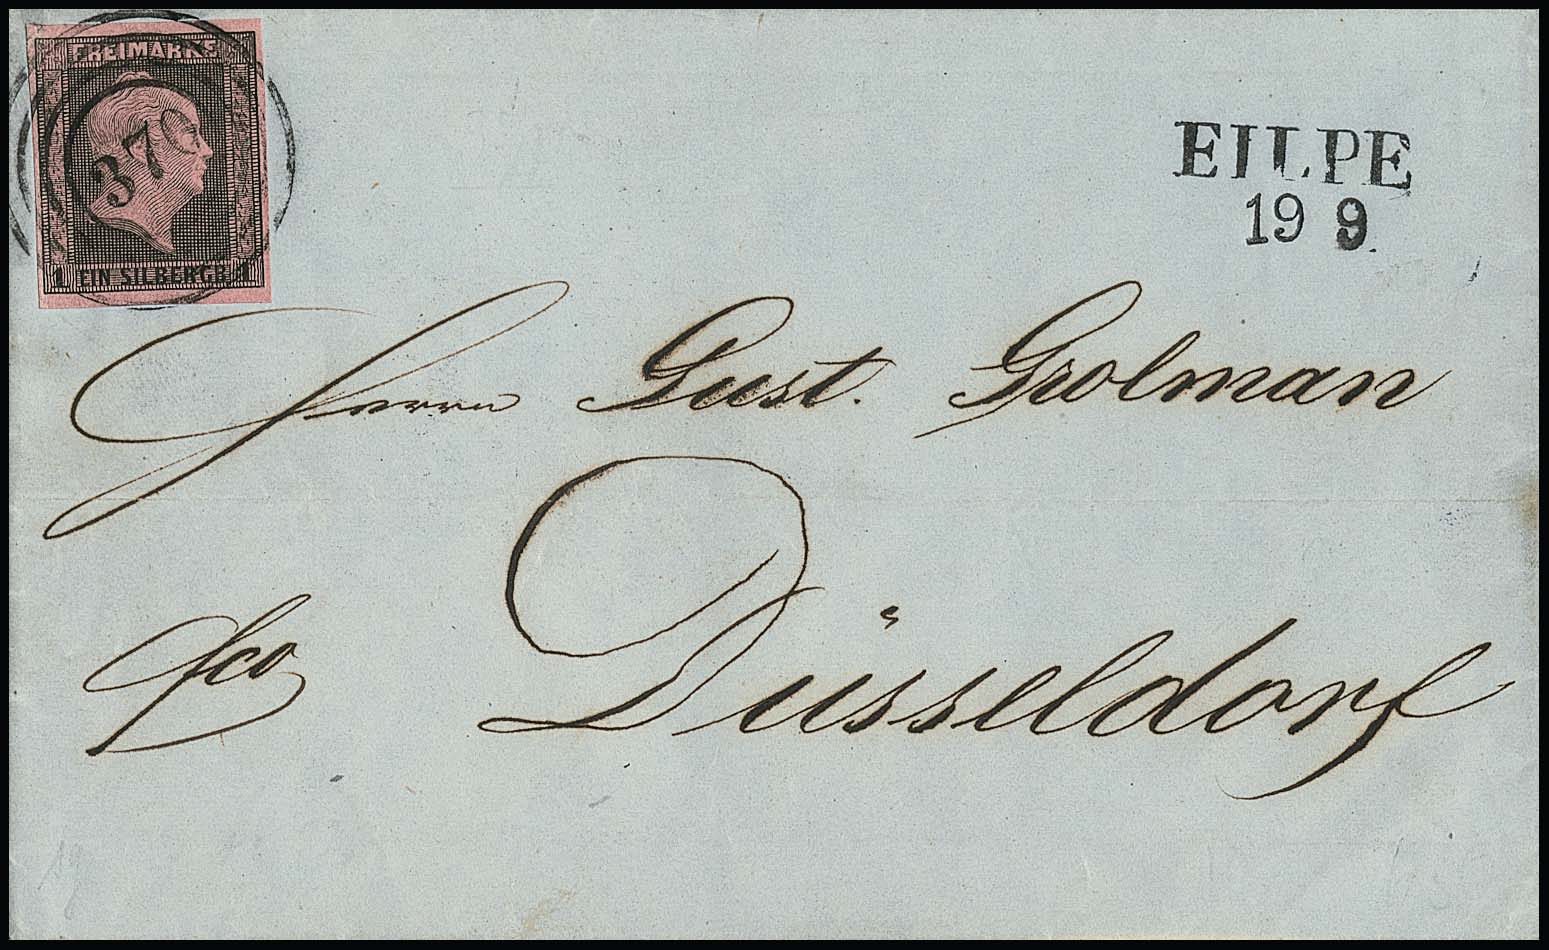 FREIMARKE
370
1 EIN SILBERGR. 1
EILPE
19 9.
Herrn Gust. Grolman
fco Düsseldorf